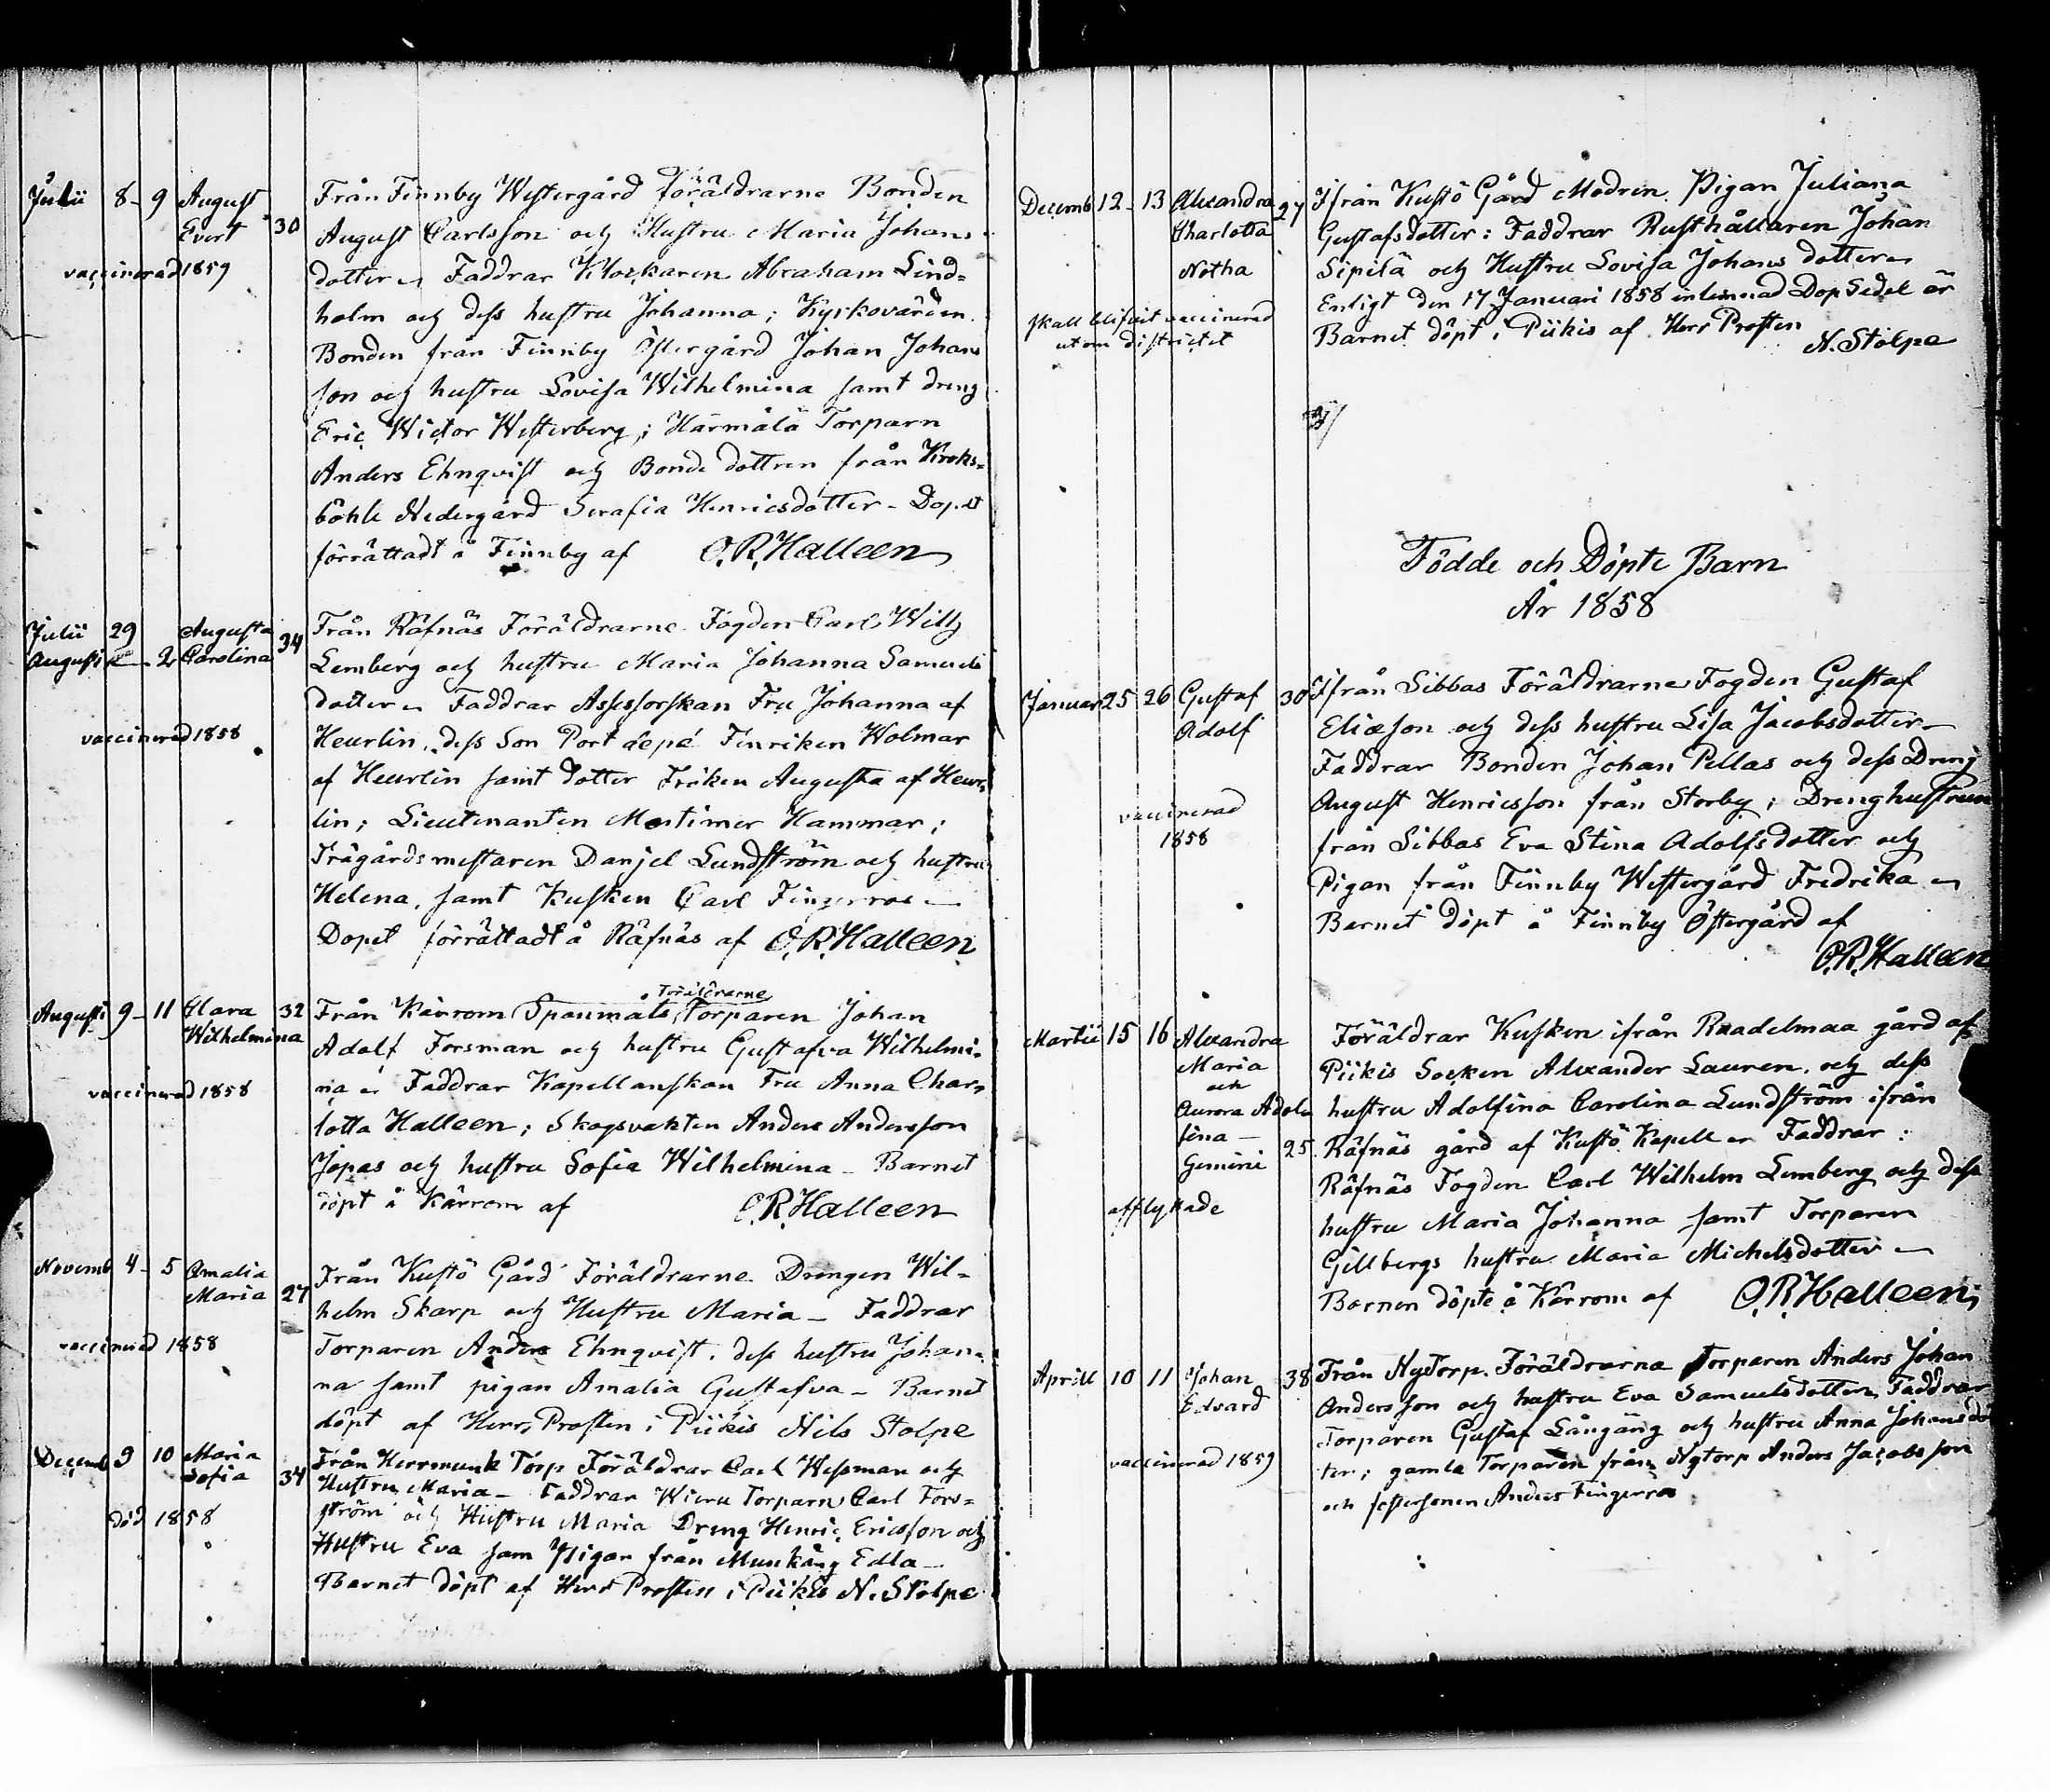 Julii 8 - 9 August Från Finnby Westergård föräldrarne Bonden
Evert 30 August Carlsson och Hustru Maria Johans
vaccinerad 1859 dotter Faddrar Klockaren Abraham Lind=
holm och dess hustru Johanna; Kyrkovärden
Bonden från Finnby Östergård Johan Johans
son och hustru Lovisa Wilhelmina samt dreng
Eric Wictor Westerberg; Härmälä Torparn
Anders Ehnqvist och Bonde dottren från Kroks=
böhle Nedergård Serafia Henricsdotter - Dopet
förrättadt å Finnby af O.R.Halleen
Julii 29 Augusta 34 Från Räfnäs Föräldrarne Fogden Carl Wilh
Augusti - 2 Carolina Lemberg och hustru Maria Johanna Samuels
dotter Faddrar Assessorskan Fru Johanna af
vaccinerad 1858 Heurlin, dess Son Port depé Fenriken Wolmar
af Heurlin samt dotter Fröken Augusta af Heur
lin; Lieutenanten Mortimer Hammar;
Trägårdsmestaren Danjel Lundström och hustru
Helena, samt Kusken Carl Fingerroos
Dopet förrättadt å Räfnäs af O.R.Halleen
Augusti 9 - 11 Clara 32 Från Kärrom Spanmåls Föräldrarne Torparen Johan
Wilhelmina Adolf Forsman och hustru Gustafva Wilhelmi
na Faddrar Kapellanskan Fru Anna Char
vaccinerad 1858 lotta Halleen; Skogsvakten Anders Andersson
Jopas och hustru Sofia Wilhelmina - Barnet
döpt å Kärrom af O.R.Halleen
Novemb 4 - 5 Amalia Från Kustö Gård Föräldrarne Drengen Wil-
Maria 27 helm Skarp och Hustru Maria - Faddrar
vaccinerad 1858 Torparen Anders Ehnqvist, dess hustru Johan
na samt pigan Amalia Gustafva - Barnet
döpt af Herr Prosten i Piikis Nils Stolpe
Decemb 9 10 Maria Från Herrmunk Torp Föräldrar Carl Wessman och
Sofia 34 Hustru Maria - Faddrar Torparn Carl Fors=
död 1858 ström och Hustru Maria Dreng Henric Ericsson och
Hustru Eva sam Pigan från Munkäng Edla -
Barnet döpt af Herr Prosten i Piikis N. Stolpe
Decemb 12 - 13 Alexandra 27 Ifrån Kustö Gård Modren Pigan Juliana
Charlotta Gustafsdotter: Faddrar Rusthållaren Johan
Notha Sipilä och Hustru Lovisa Johans dotter
skall blifvit vaccinerad Enligt den 17 Januari 1858 inlemnad Dop Sedel är
utom districtet Barnet döpt i Piikis af Herr Prosten N. Stolpe
Födde och Döpte Barn
År 1858
Januar 25 26 Gustaf 30 Ifrån Sibbas Föräldrarne Fogden Gustaf
Adolf Eliæson och dess hustru Lisa Jacobsdotter
Faddrar Bonden Johan Pellas och dess Dreng
vaccinerad August Henricsson från Storby; Drenghustrun
1858 från Sibbas Eva Stina Adolfsdotter och
Pigan från Finnby Westergård Fredrika
Barnet döpt å Finnby Östergård af
O.R.Halleen
Martii 15 16 Alexandra Föräldrar Kusken ifrån Raadelmaa gård af
Maria Piikis Socken Alexander Lauren, och dess
och
Aurora Adol hustru Adolfina Carolina Lundström ifrån
fina - Räfnäs gård af Kustö Kapell Faddrar:
Gemini 25 Räfnäs Fogden Carl Wilhelm Lemberg och dess
afflyttade hustru Maria Johanna samt Torparen
Gillbergs hustru Maria Michelsdotter
Barnen döpte å Kärrom af O.R.Halleen
Aprill 10 11 Johan 38 Från NyTorp. Föräldrarna Torparen Anders Johan
Edvard Andersson och hustru Eva Samuelsdotter, Faddrar
Torparen Gustaf Långäng och hustru Anna Johansdot
vaccinerad 1859 ter; gamla Torparen från Nytorp Anders Jacobsson
och Anders Fingerroos